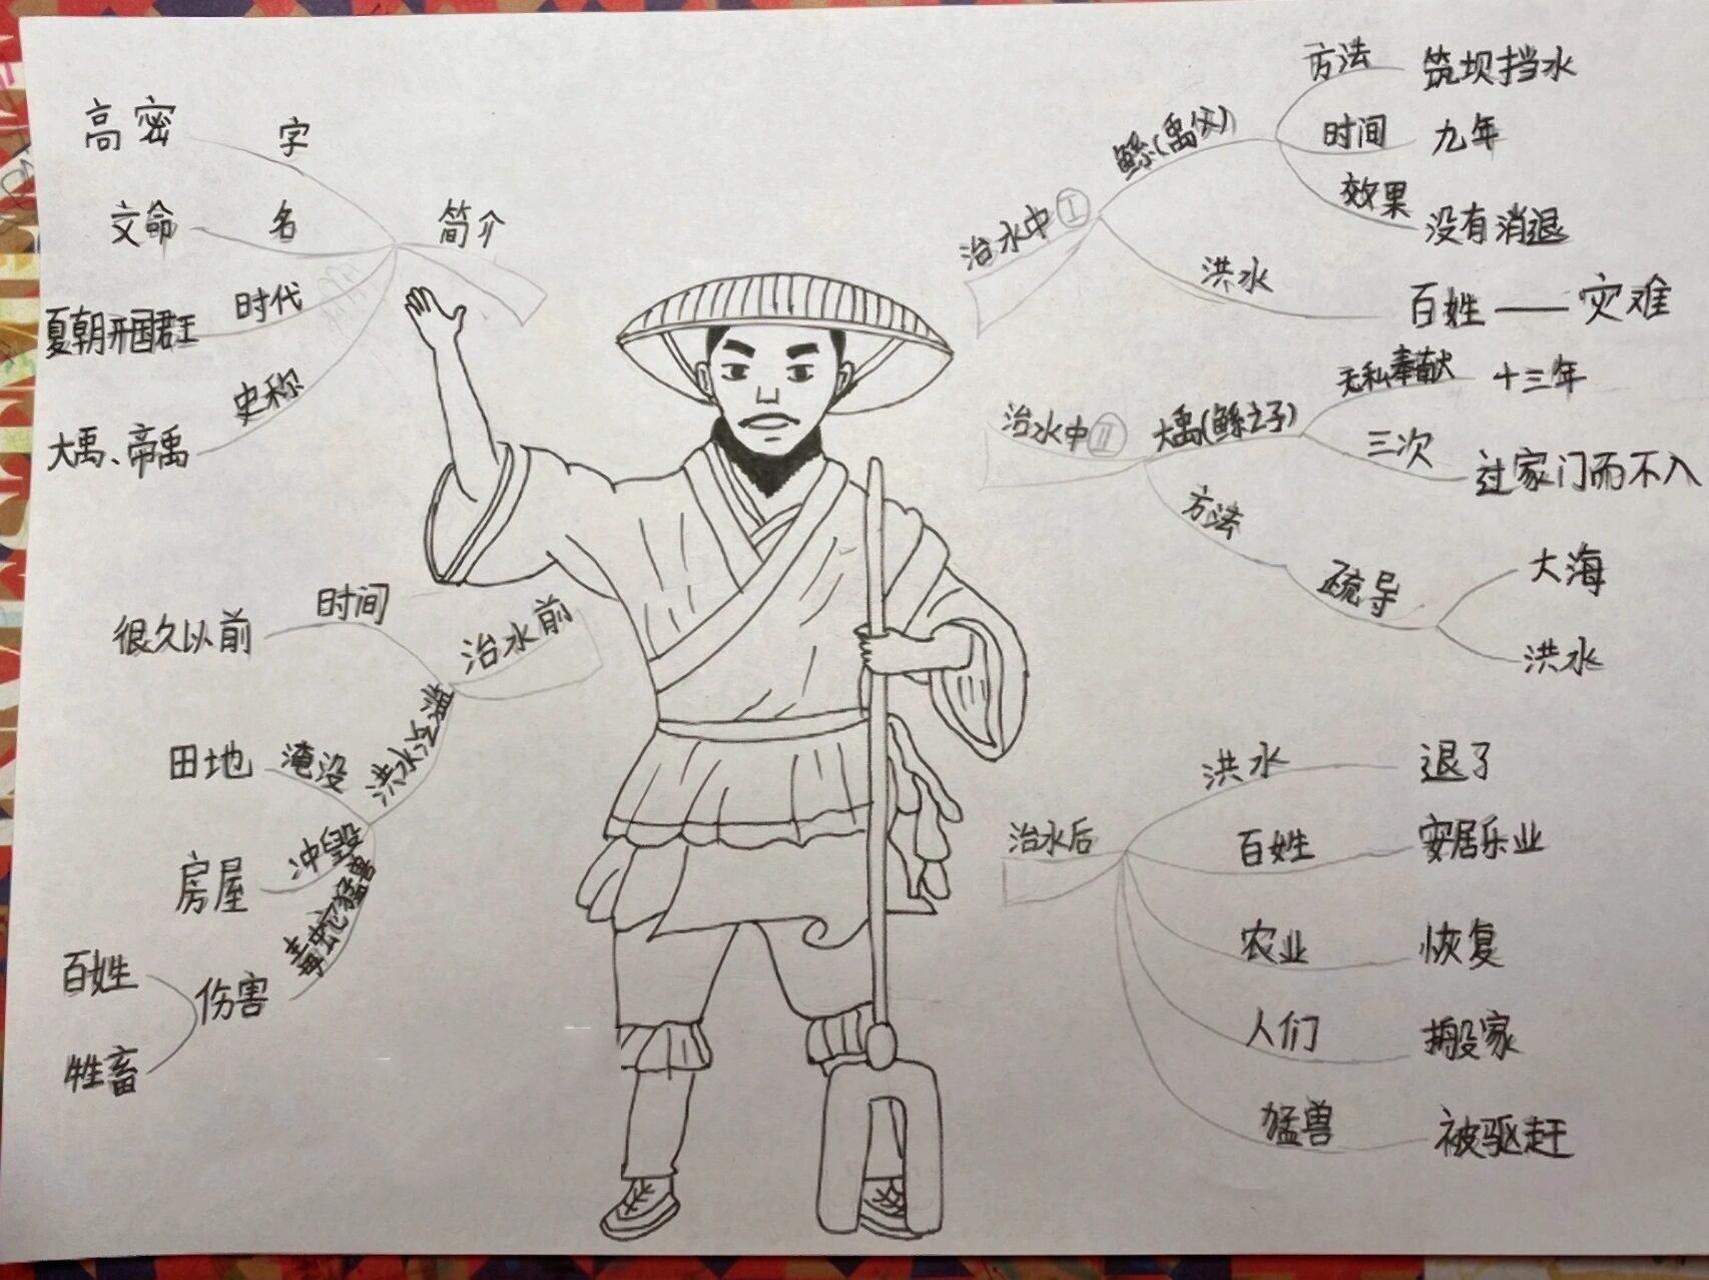 简介
字
高密
名
文命
时代
夏朝开国君王
史称
大禹、帝禹
治水前
时间
很久以前
洪水泛滥
淹没
田地
冲毁
房屋
毒蛇猛兽
伤害
百姓
牲畜
治水中Ⅰ
鲧(禹父)
方法
筑坝挡水
时间
九年
效果
没有消退
洪水
百姓——灾难
治水中Ⅱ
大禹(鲧之子)
无私奉献
十三年
三次
过家门而不入
方法
疏导
大海
洪水
治水后
洪水
退了
百姓
安居乐业
农业
恢复
人们
搬家
猛兽
被驱赶